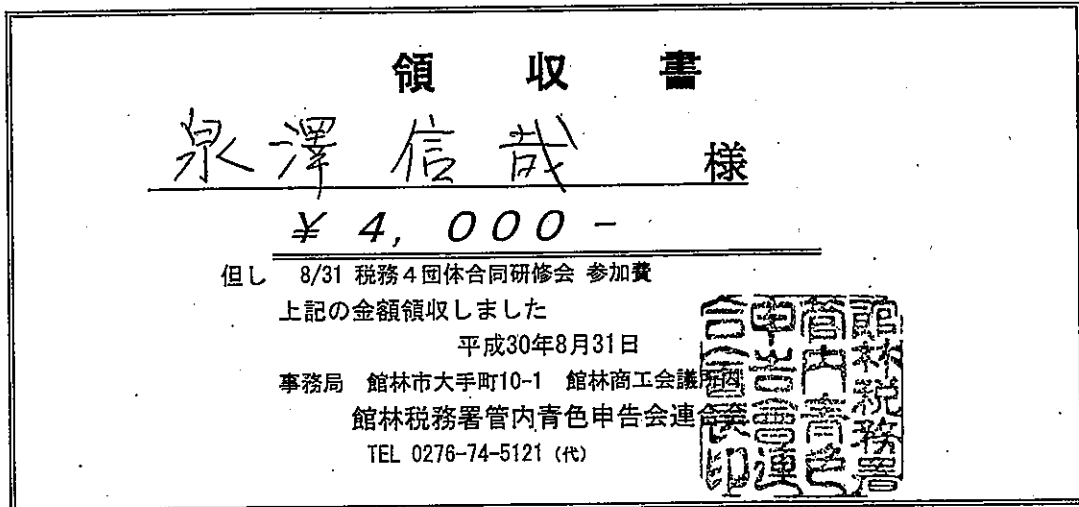 領 収 書
泉澤 信哉 様
¥ 4, 000 -
但し 8/31 税務４団体合同研修会 参加費
上記の金額領収しました
平成30年8月31日
事務局 館林市大手町10-1 館林商工会議所内
館林税務署管内青色申告会連合会
TEL 0276-74-5121 (代)
館林税務署
管内青色
申告会連
合会長印